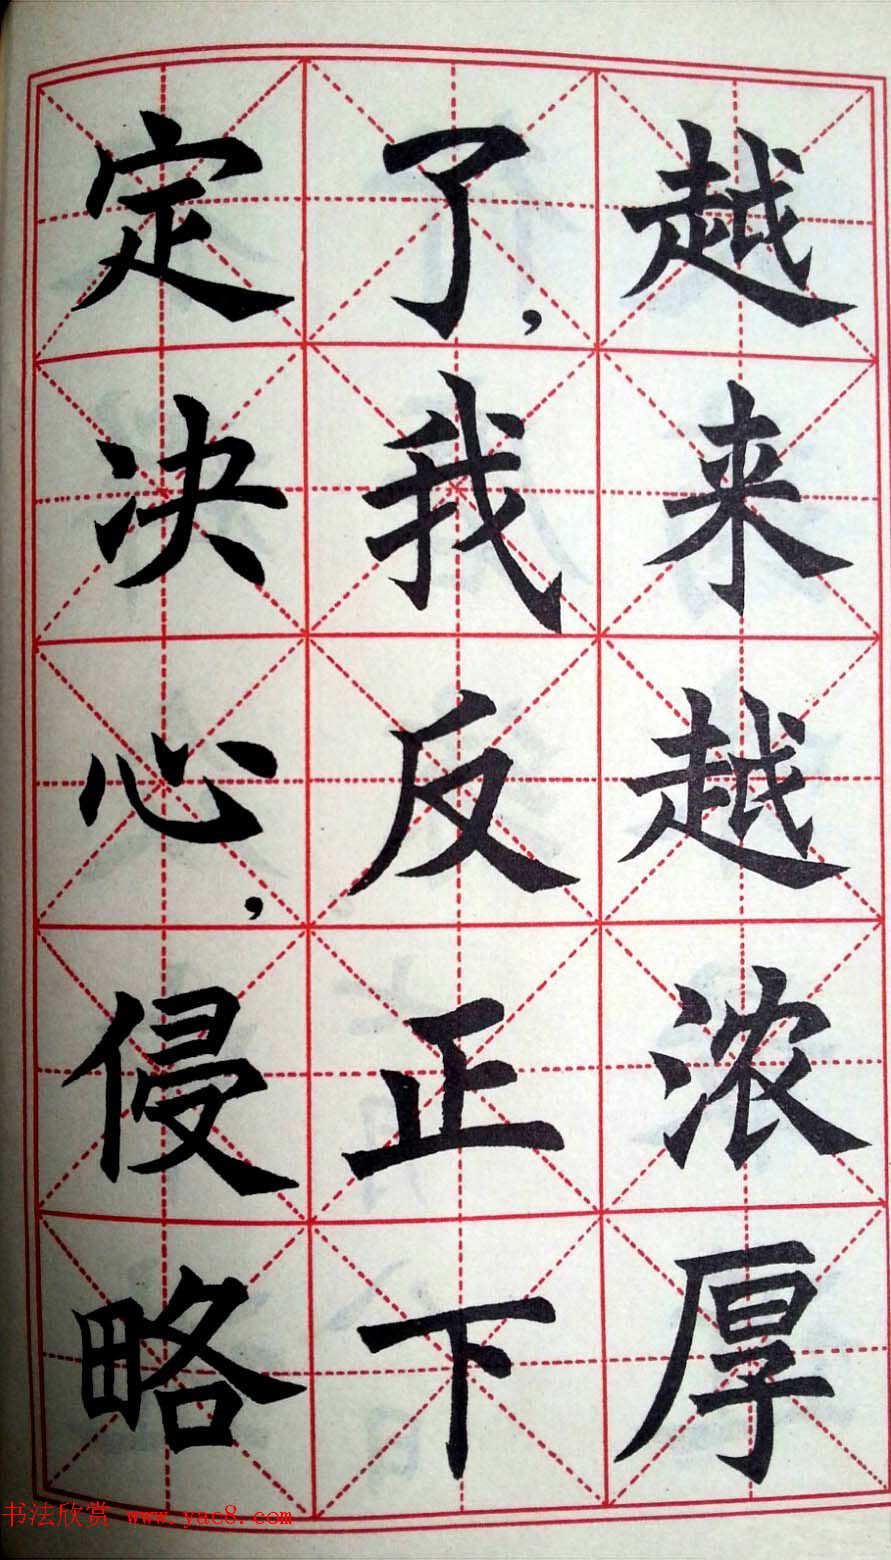 越来越浓厚
了，我反正下
定决心，侵略
书法欣赏 www.yac8.com